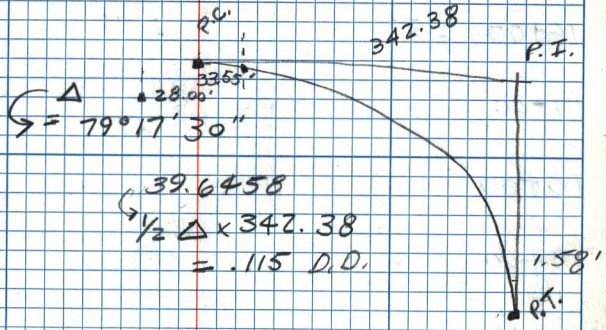 P.C.
342.38
P.I.
33.55'
28.00'
Δ
= 79°17'30"
39.6458
1/2 Δ x 342.38
= .115 D.D.
1.58'
P.T.